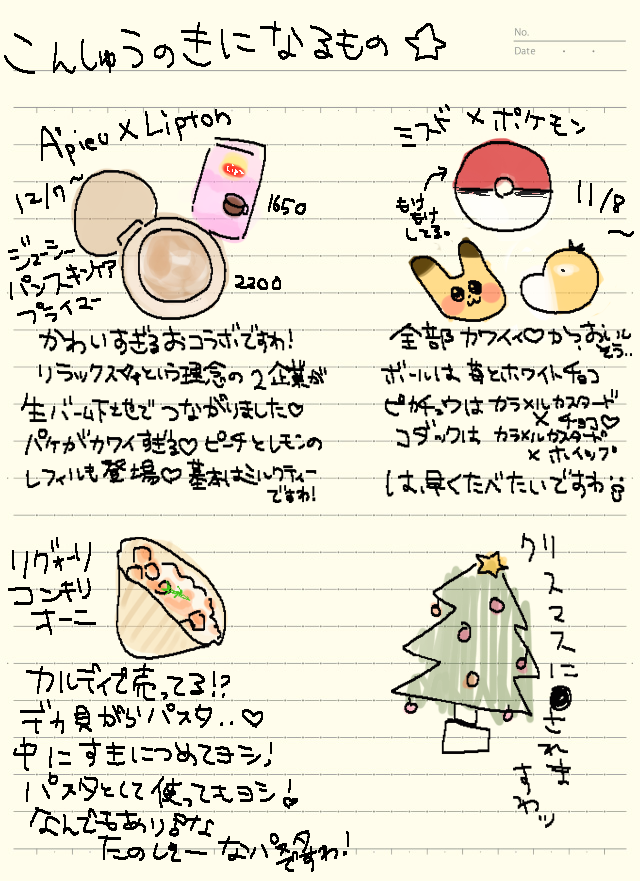 こんしゅうのきになるもの☆
No.
Date
A'pieu×Lipton
12/7〜
1650
2200
ジューシー
パンスキンケア
プライマー
かわいすぎるおコラボですわ!
リラックスタイムという理念の2企業が
生バームト下地でつながりました♡
パケがカワイすぎる♡ピーチとレモンの
レフィルも登場♡基本はミルクティー
ですわ!
ミスド×ポケモン
11/8
〜
もけ
もけ
してる。
全部カワイイ♡かつおいし
そう..
ボールは、苺とホワイトチョコ
ピカチュウはカラメルカスタード
×チョコ♡
コダックはカラメルカスタード
×ホイップ
は、早くたべたいですわ
リガーリ
コンキリ
オーニ
カルディで売ってる!?
デカ貝がらパスタ..♡
中にすきにつめてヨシ!
パスタとして使ってもヨシ!
なんでもありまな
たのしそーなパスタ
ですわ!
クリスマスに
されま
すわッ